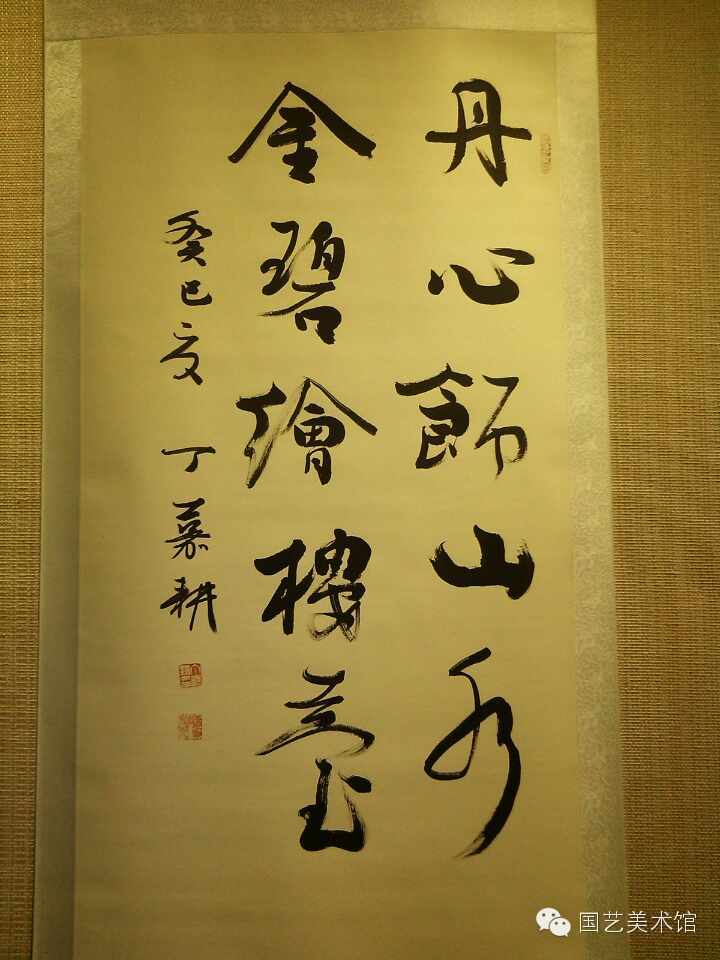 丹心飾山水
金碧繪樓臺
癸巳夏 丁慕耕
国艺美术馆